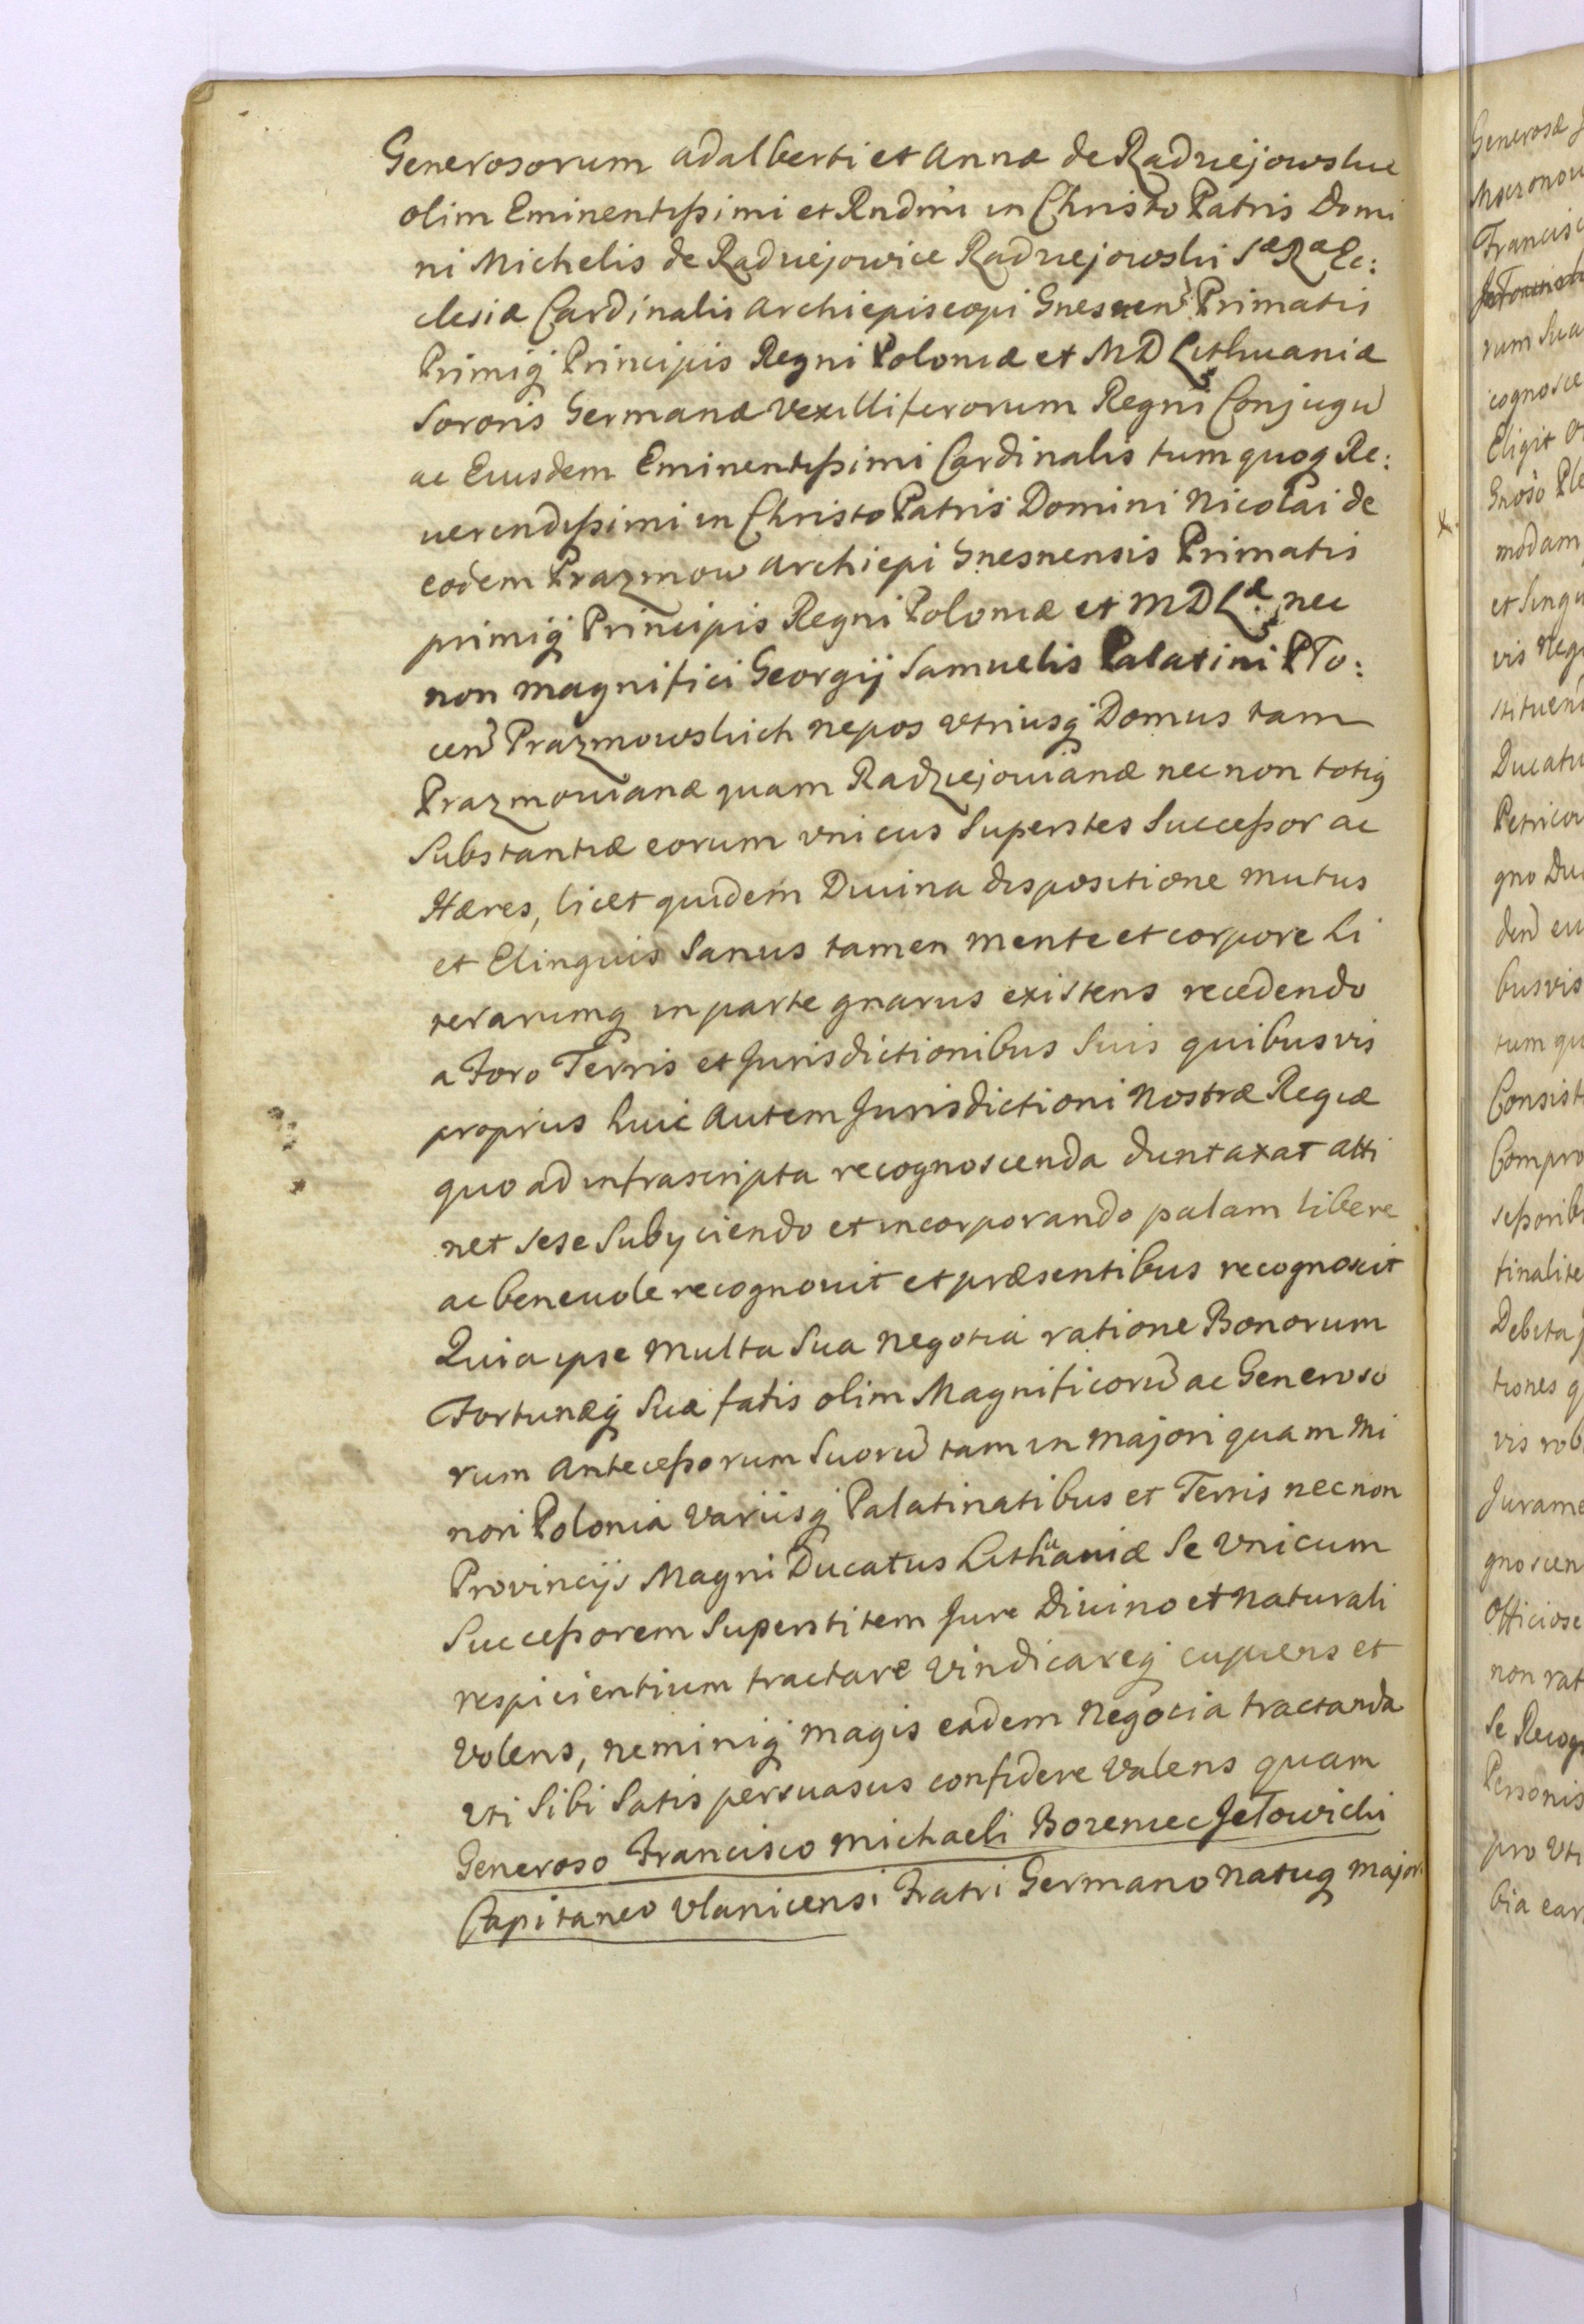 Generosorum Adalberti et Annæ de Radziejowskie
olim Eminentißimi et Rndmi in Christo Patris Domi
ni Michelis de Radziejowice Radziejowski Sæ Ræ Ec:
clesiæ Cardinalis Archiepiscopi Gnesnen Primatis
Primiq Principis Regni Poloniæ et MD Lithuaniæ
Sororis Germanæ Vexilliferorum Regni Conjugu
ac Eiusdem Eminentißimi Cardinalis tum quoq Re:
uerendißimi in Christo Patris Domini Nicolai de
eodem Prazmow Archiepi Gnesnensis Primatis
primiq Principis Regni Poloniæ et MD Læ nec
non Magnifici Georgij Samuelis Palatini PTo:
cen Prazmowskich nepos Vtriusq Domus tam
Prazmowianæ quam Radziejowianæ necnon totiq
Substantiæ eorum vnicus Superstes Succeßor ac
Hæres, licet quidem Diuina dispositione mutus
et Elinguis Sanus tamen mente et corpore Li
terarumq in parte gnarus existens recedendo
a Foro Terris et Jurisdictionibus Suis quibusvis
proprius huic Autem Jurisdictioni Nostræ Regiæ
quo ad infrascripta recognoscenda duntaxat atti
net sese Subyciendo et incorporando palam libere
ac beneuole recognouit et præsentibus recognoscit
Quia ipse Multa Sua Negotia ratione Bonorum
Fortunæq Suæ fatis olim Magnificoru ac Generoso
rum Anteceßorum Suoru tam in majori quam Mi
nori Polonia Variisq Palatinatibus et Terris necnon
Provincijs Magni Ducatus Lithuaniæ Se Vnicum
Succeßorem Superstitem Jure Diuino et Naturali
respicientium tractare Vindicareq cupiens et
Volens, neminiq magis eadem Negocia tractanda
Vti Sibi Satis persuasus confidere Valens quam
Generoso Francisco Michaeli Bozeniec JeTowicki
Capitaneo Vlanicensi Fratri Germano Natuq Major
Generosæ
Francisc
rum Sua
cognosce
Eligit
Gnoso Ple
modam
et Singu
vis Neg
stituen
Ducatu
Petricov
gno Du
den eu
busvis
tum qu
Consist
Compro
seßorib
finalite
Debita
tiones q
vis rob
Jurame
gnoscen
Officiose
non rat
Se Recog
Personis
pro Vti
bia ear